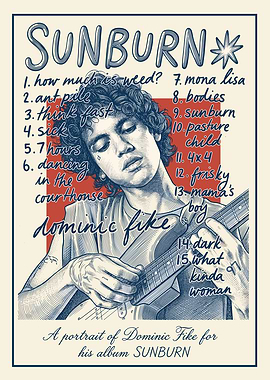 SUNBURN
1. how much is weed?
2. ant pile
3. think fast
4. sick
5. 7 hours
6. dancing
in the
courthouse
7. mona lisa
8. bodies
9. sunburn
10. pasture
child
11. 4x4
12. frisky
13. mama's
boy
14. dark
15. what
kinda
woman
dominic fike
A portrait of Dominic Fike for
his album SUNBURN